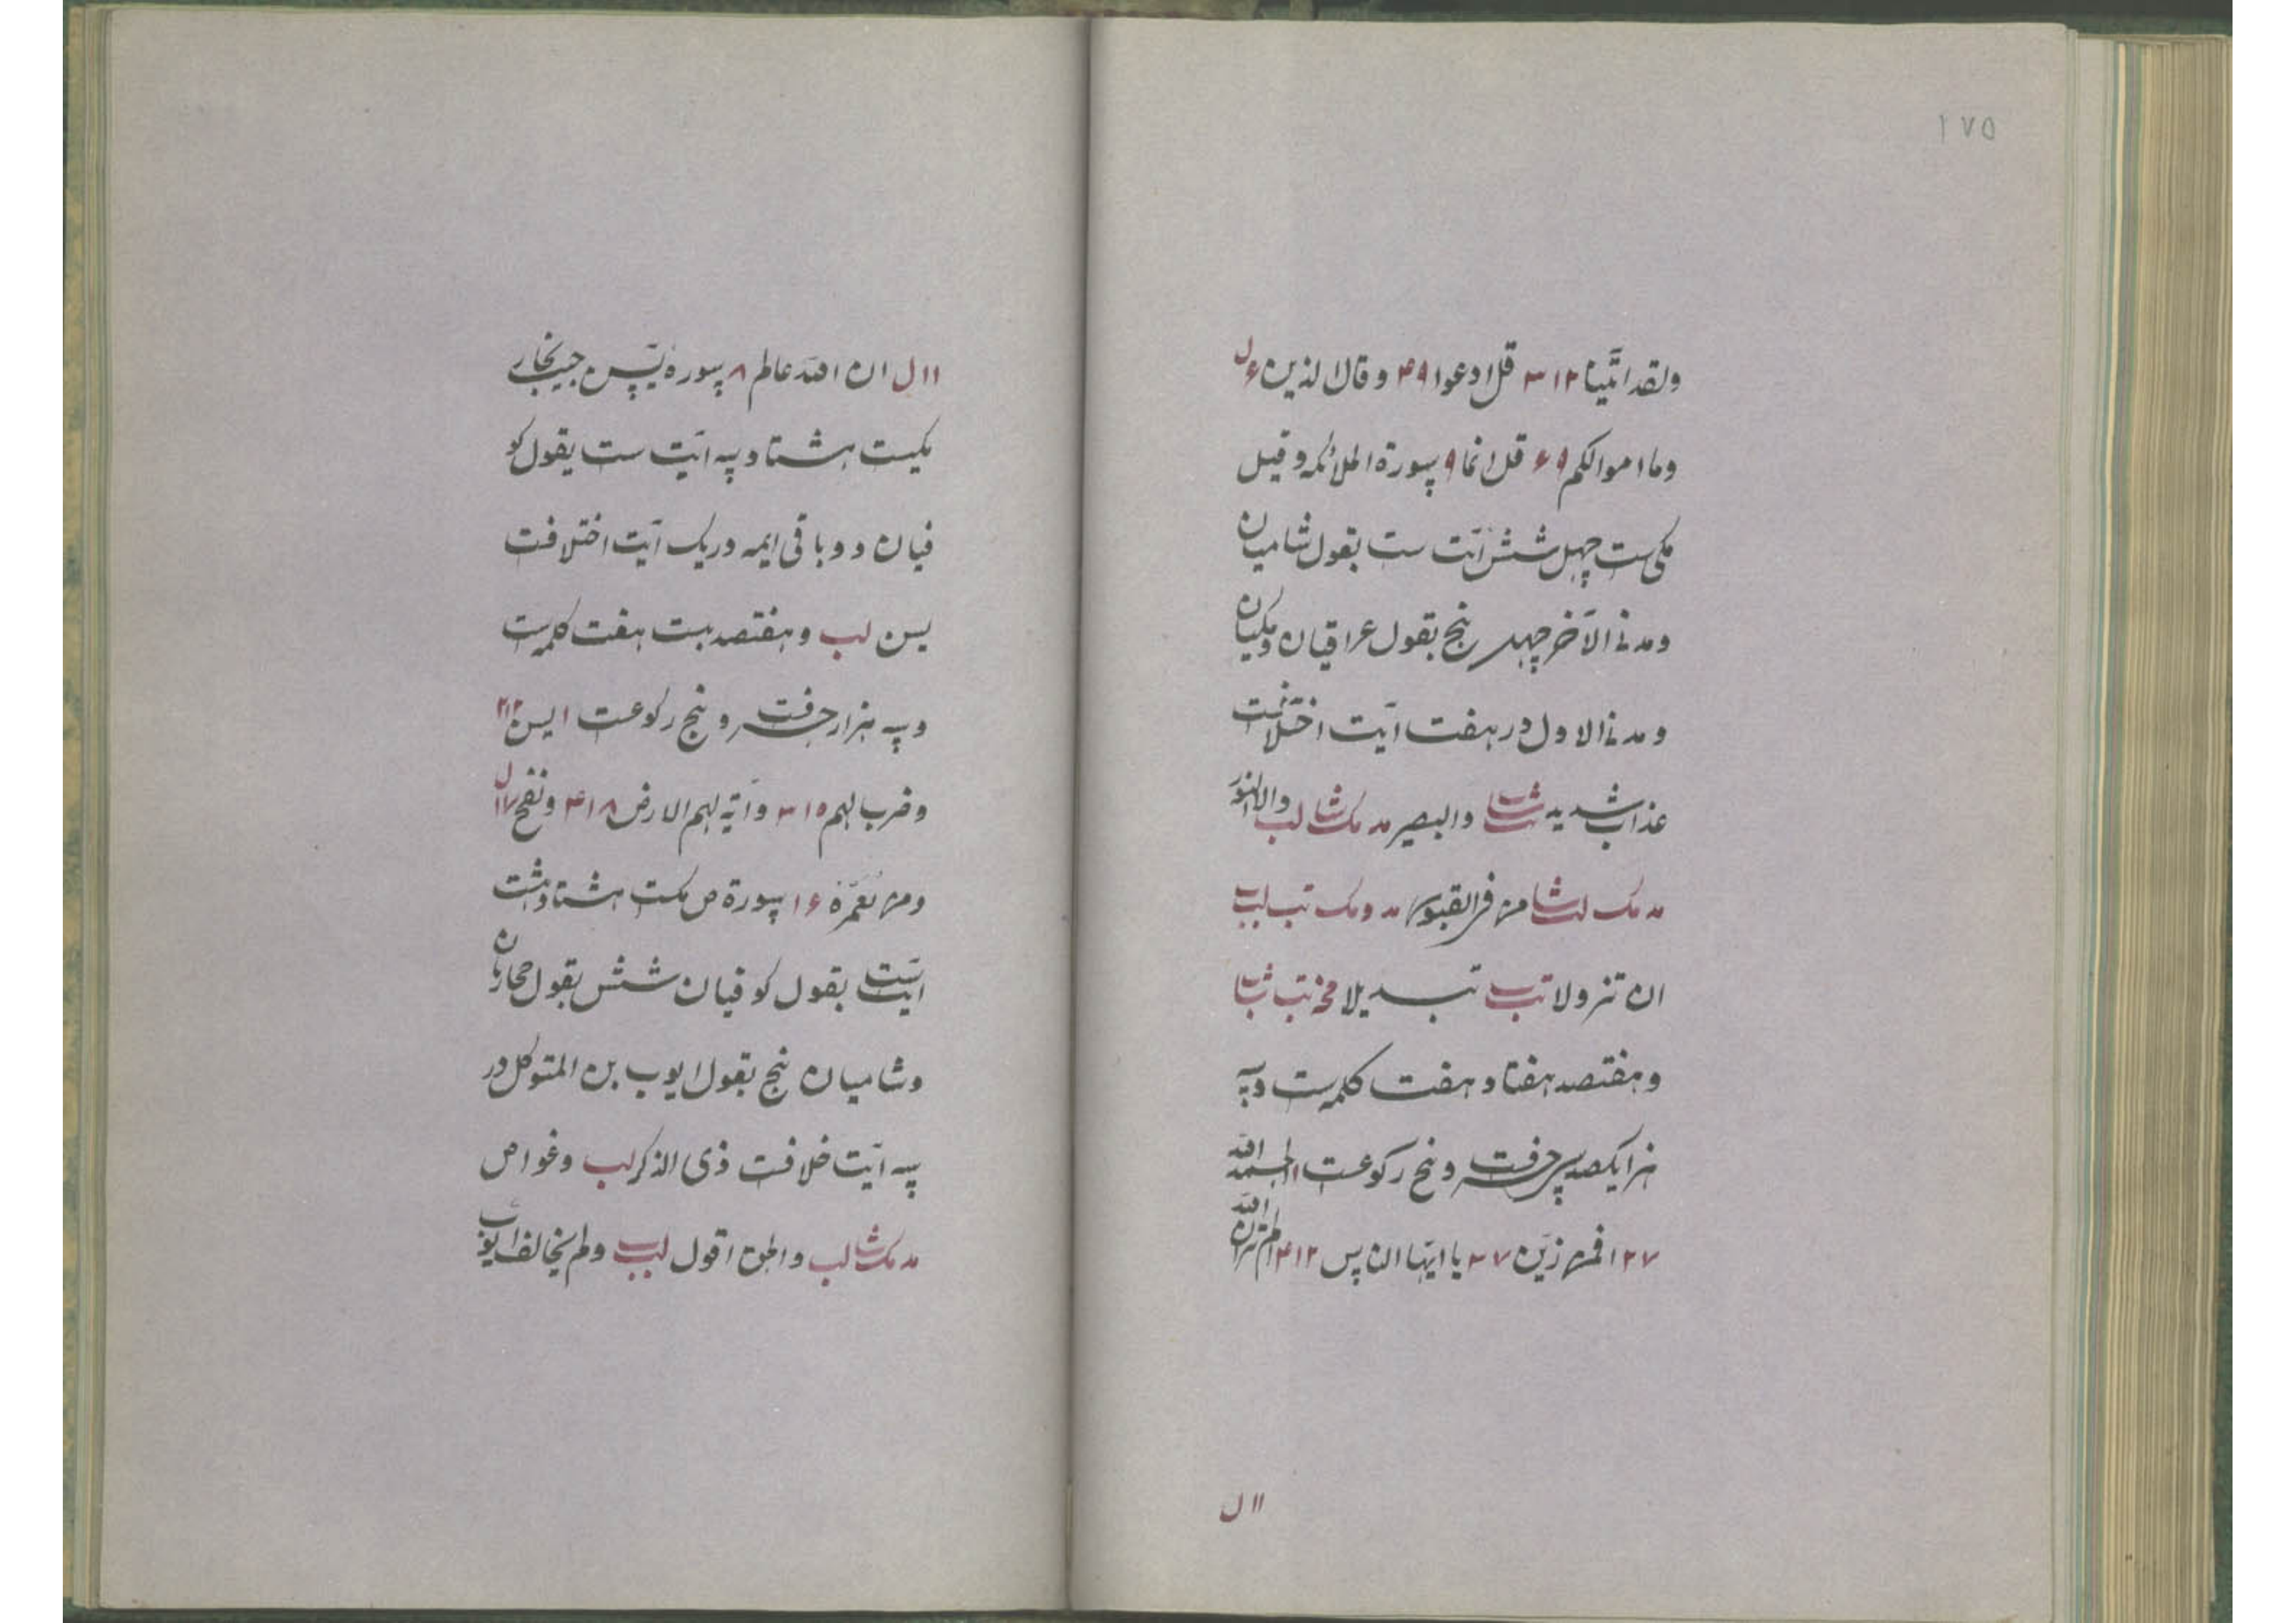 ۱۷۵
ولقد اتینا ۱۲ ۳ قل ادعوا ۹ ۴ و قال الذین ۶ ل
وما اموالکم ۹ ۶ قل انما ۹ سورة الملائکه وقیل
مکی ست چهل شش آیت ست بقول شامیان
ومدنی الآخر چهل پنج بقول عراقیان ومکیان
ومدنی الاول در هفت آیت اختلافست
عذاب شدید والبصیر مد مک شا لب والا النور
مد مک لب شا من فی القبور مد و مک تب لب
ان تزولا تب تبدیلا
وهفتصد هفتاد هفت کلمه ست وسه
هزار یکصد سی حرفست و پنج رکوعست ۱ الحمد لله
۲۷ افمن زین ۷ ۳ یا ایها الناس ۱۲ ۴ الم تر ان الله
۱۱ ل
۱۱ ل ان الله عالم ۸ سورهٔ یس حبیب نجار
مکیست هشتاد سه آیت ست بقول کو
فیان دو و باقی ایمه در یک آیت اختلافست
یسن لب وهفتصد بست هفت کلمه ست
وسه هزار حرفست و پنج رکوعست ۱ یسن ۱۲ ۲
وضرب لهم ۱۵ ۳ وآیة لهم الارض ۱۸ ۴ ونفخ ۱۷ ل
ومن نعمره ۱۶ سورة ص مکیست هشتاد هشت
آیت ست بقول کوفیان شش بقول حجازیان
وشامیان پنج بقول ایوب بن المتوکل در
سه آیت خلافست ذی الذکر لب وغواص
مد مک شا لب والحق اقول لب ولم یخالف ایوب